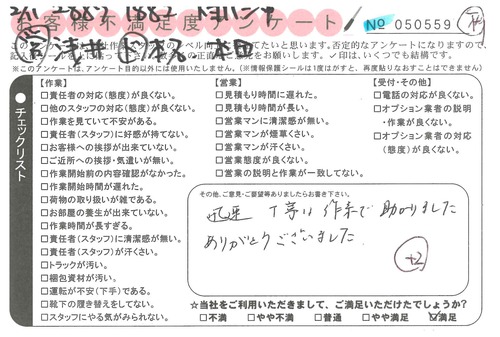 お客様不満足度アンケート
№ 050559
※このアンケートは、アンケート目的以外には使用いたしません。（※情報保護シールは1度はがすと、再度貼りなおすことはできません）
チェックリスト
【作業】
□責任者の対応（態度）が良くない。
□他のスタッフの対応（態度）が良くない。
□作業を見ていて不安がある。
□責任者（スタッフ）に好感が持てない。
□お客様への挨拶が出来ていない。
□ご近所への挨拶・気遣いが無い。
□作業開始前の内容確認がなかった。
□作業開始時間が遅れた。
□荷物の取り扱いが雑である。
□お部屋の養生が出来ていない。
□作業時間が長すぎる。
□責任者（スタッフ）に清潔感が無い。
□責任者（スタッフ）が汗くさい。
□トラックが汚い。
□梱包資材が汚い。
□運転が不安（下手）である。
□靴下の履き替えをしてない。
□スタッフにやる気がみられない。
【営業】
□見積もり時間に遅れた。
□見積もり時間が長い。
□営業マンに清潔感が無い。
□営業マンが煙草くさい。
□営業マンが汗くさい。
□営業態度が良くない。
□営業の説明と作業が一致してない。
【受付・その他】
□電話の対応が良くない。
□オプション業者の説明
・作業が良くない。
□オプション業者の対応
（態度）が良くない。
その他、ご意見・ご要望等ありましたらお書き下さい。
迅速 丁寧な作業で助かりました
ありがとうございました
+2
☆当社をご利用いただきまして、ご満足いただけたでしょうか？
□不満 □やや不満 □普通 □やや満足 ☑満足